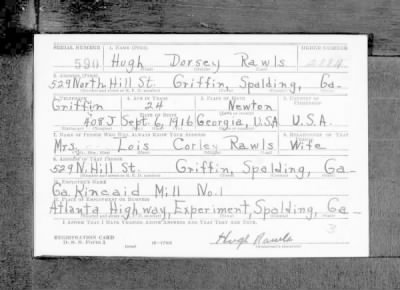 SERIAL NUMBER 1. NAME (Print) ORDER NUMBER
590 Hugh Dorsey Rawls
(First) (Middle) (Last)
2. ADDRESS (Print)
529 North Hill St. Griffin, Spalding, Ga-
3. TELEPHONE 4. AGE IN YEARS 5. PLACE OF BIRTH 6. COUNTRY OF CITIZENSHIP
Griffin 24 Newton
DATE OF BIRTH
408 J Sept. 6, 1916 Georgia, U.S.A U.S.A.
7. NAME OF PERSON WHO WILL ALWAYS KNOW YOUR ADDRESS 8. RELATIONSHIP OF THAT PERSON
Mrs. Lois Corley Rawls Wife
9. ADDRESS OF THAT PERSON
529 N. Hill St. Griffin, Spalding, Ga
10. EMPLOYER'S NAME
Ga Kincaid Mill No. 1
11. PLACE OF EMPLOYMENT OR BUSINESS
Atlanta Highway, Experiment, Spalding, Ga-
I AFFIRM THAT I HAVE VERIFIED ABOVE ANSWERS AND THAT THEY ARE TRUE.
REGISTRATION CARD
D. S. S. Form 1 Hugh Rawls